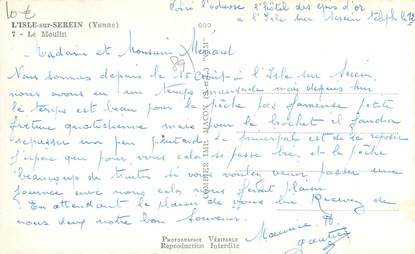 10€
Voici l'adresse l'hôtel des épis d'or
à l'Isle sur Serein
L'ISLE-sur-SEREIN (Yonne)
7 - Le Moulin
Madame et Monsieur Ménard
89
Nous sommes depuis le à l'Isle sur Serein,
nous avons eu un temps mauvais mais depuis hier
le temps est beau pour la pêche pas fameuse petite
friture quotidienne mais pour le brochet il faudra
repasser un peu plus tard le principal est de se reposer
j'espère que pour vous cela se passe bien et la pêche
beaucoup de truites si vous voulez venir passer une
journée avec nous cela nous ferait plaisir
En attendant le plaisir de vous lire Recevez de
nous deux notre bon Souvenir.
Maurice
Gautier
COMBIER IMP. MACON (S.-et-L.) "CIM"
PHOTOGRAPHIE VÉRITABLE
Reproduction Interdite